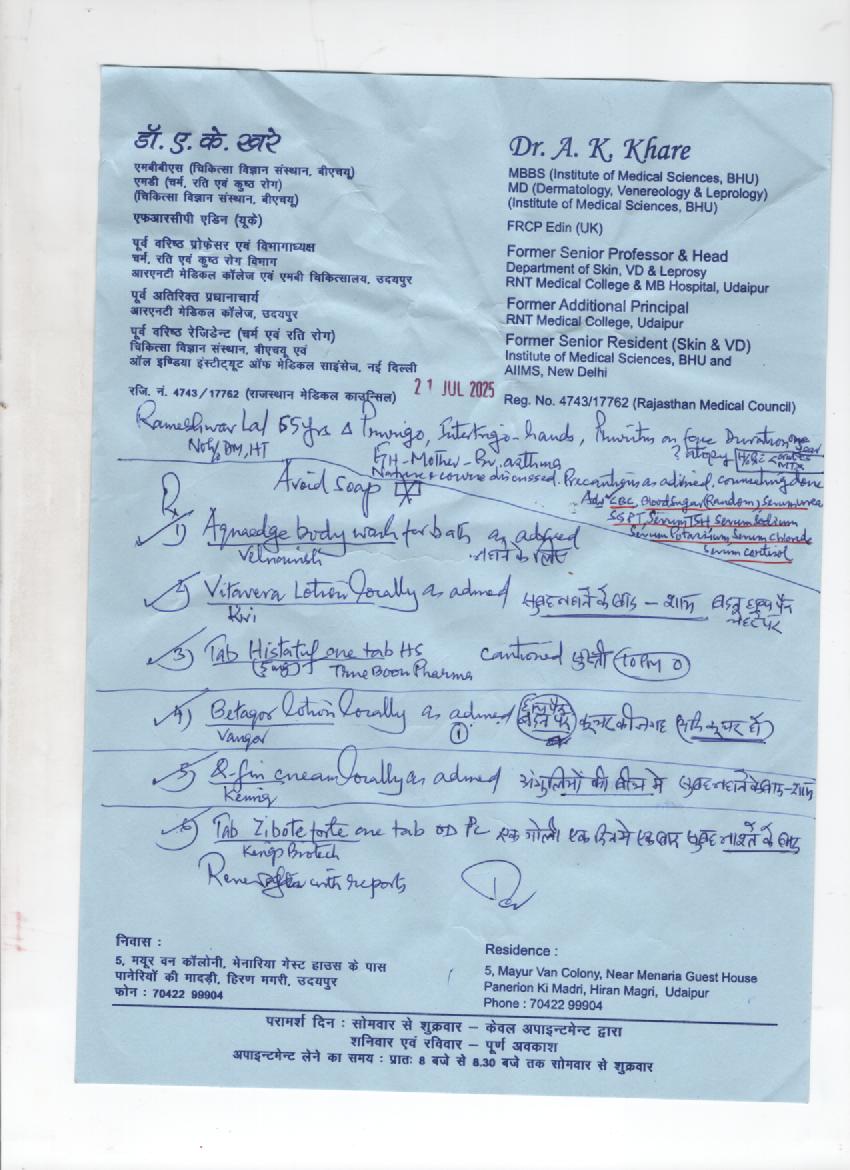 डॉ. ए. के. खरे
एमबीबीएस (चिकित्सा विज्ञान संस्थान, बीएचयू)
एमडी (चर्म, रति एवं कुष्ठ रोग)
(चिकित्सा विज्ञान संस्थान, बीएचयू)
एफआरसीपी एडिन (यूके)
पूर्व वरिष्ठ प्रोफेसर एवं विभागाध्यक्ष
चर्म, रति एवं कुष्ठ रोग विभाग
आरएनटी मेडिकल कॉलेज एवं एमबी चिकित्सालय, उदयपुर
पूर्व अतिरिक्त प्रधानाचार्य
आरएनटी मेडिकल कॉलेज, उदयपुर
पूर्व वरिष्ठ रेजिडेन्ट (चर्म एवं रति रोग)
चिकित्सा विज्ञान संस्थान, बीएचयू एवं
ऑल इण्डिया इंस्टीट्यूट ऑफ मेडिकल साइंसेज, नई दिल्ली
रजि. नं. 4743/17762 (राजस्थान मेडिकल काउन्सिल)
Dr. A. K. Khare
MBBS (Institute of Medical Sciences, BHU)
MD (Dermatology, Venereology & Leprology)
(Institute of Medical Sciences, BHU)
FRCP Edin (UK)
Former Senior Professor & Head
Department of Skin, VD & Leprosy
RNT Medical College & MB Hospital, Udaipur
Former Additional Principal
RNT Medical College, Udaipur
Former Senior Resident (Skin & VD)
Institute of Medical Sciences, BHU and
AIIMS, New Delhi
Reg. No. 4743/17762 (Rajasthan Medical Council)
21 JUL 2025
Rameshwar Lal 55yrs Δ Prurigo, Intertrigo-hands, Pruritus on face Duration one year
DM, HT ? atopy
F/H-Mother-Br. asthma
Nature & course discussed. Precautions as advised, counseling done
Avoid soap
Adv CBC, Blood sugar (Random), Serum urea
SGPT, Serum TSH, Serum Sodium
Serum Potassium, Serum chloride
Serum cortisol
Rx
1) Aquaedge body wash for bath as advised
नहाने के लिए
2) Vitavera Lotion locally as advised सुबह नहाने के बाद - शाम
3) Tab Histatuf one tab HS cautioned
(5mg) Pharma
4) Betagor lotion locally as advised
5) cream locally as advised अंगुलियों के बीच में सुबह नहाने के बाद-शाम
6) Tab Zibote forte one tab OD PC एक गोली एक दिन में एक बार सुबह नाश्ते के बाद
Biotech
with reports
निवास :
5, मयूर वन कॉलोनी, मेनारिया गेस्ट हाउस के पास
पानेरियों की मादड़ी, हिरण मगरी, उदयपुर
फोन : 70422 99904
Residence :
5, Mayur Van Colony, Near Menaria Guest House
Panerion Ki Madri, Hiran Magri, Udaipur
Phone : 70422 99904
परामर्श दिन : सोमवार से शुक्रवार – केवल अपाइन्टमेन्ट द्वारा
शनिवार एवं रविवार – पूर्ण अवकाश
अपाइन्टमेन्ट लेने का समय : प्रातः 8 बजे से 8.30 बजे तक सोमवार से शुक्रवार